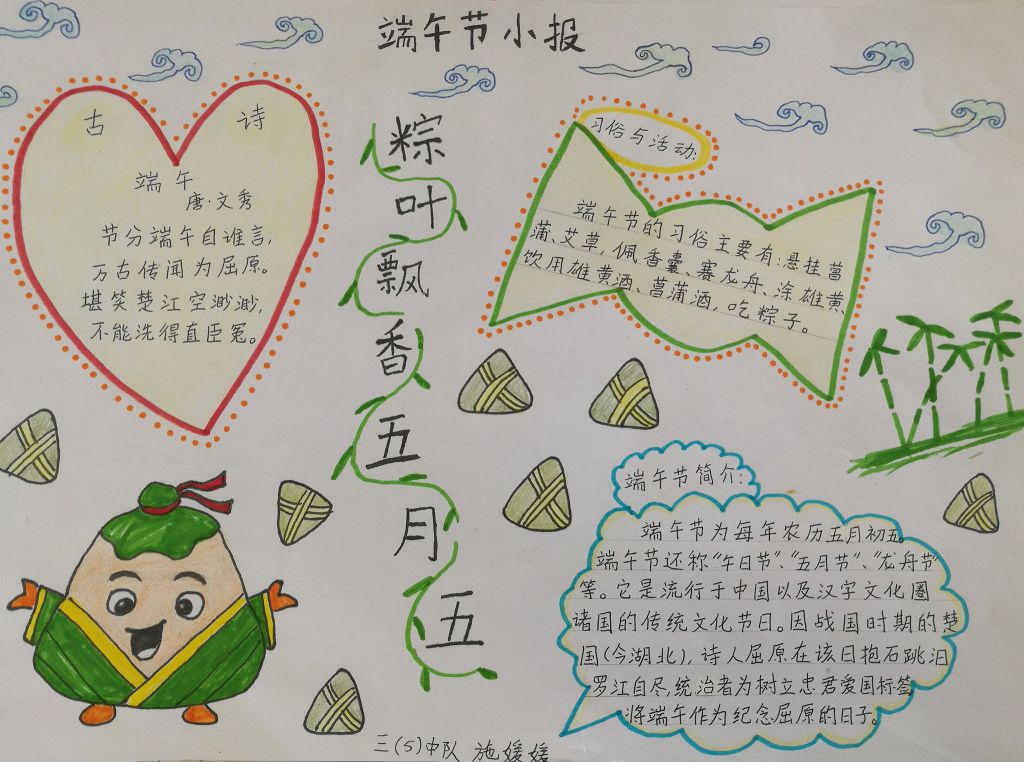 端午节小报
古 诗
端午
唐·文秀
节分端午自谁言,
万古传闻为屈原。
堪笑楚江空渺渺,
不能洗得直臣冤。
粽叶飘香五月五
习俗与活动:
端午节的习俗主要有:悬挂菖
蒲、艾草,佩香囊、赛龙舟、涂雄黄、
饮用雄黄酒、菖蒲酒,吃粽子。
端午节简介:
端午节为每年农历五月初五,
端午节还称“午日节”、“五月节”、“龙舟节”
等。它是流行于中国以及汉字文化圈
诸国的传统文化节日。因战国时期的楚
国(今湖北),诗人屈原在该日抱石跳汨
罗江自尽,统治者为树立忠君爱国标签
将端午作为纪念屈原的日子。
三(5)中队 施媛媛